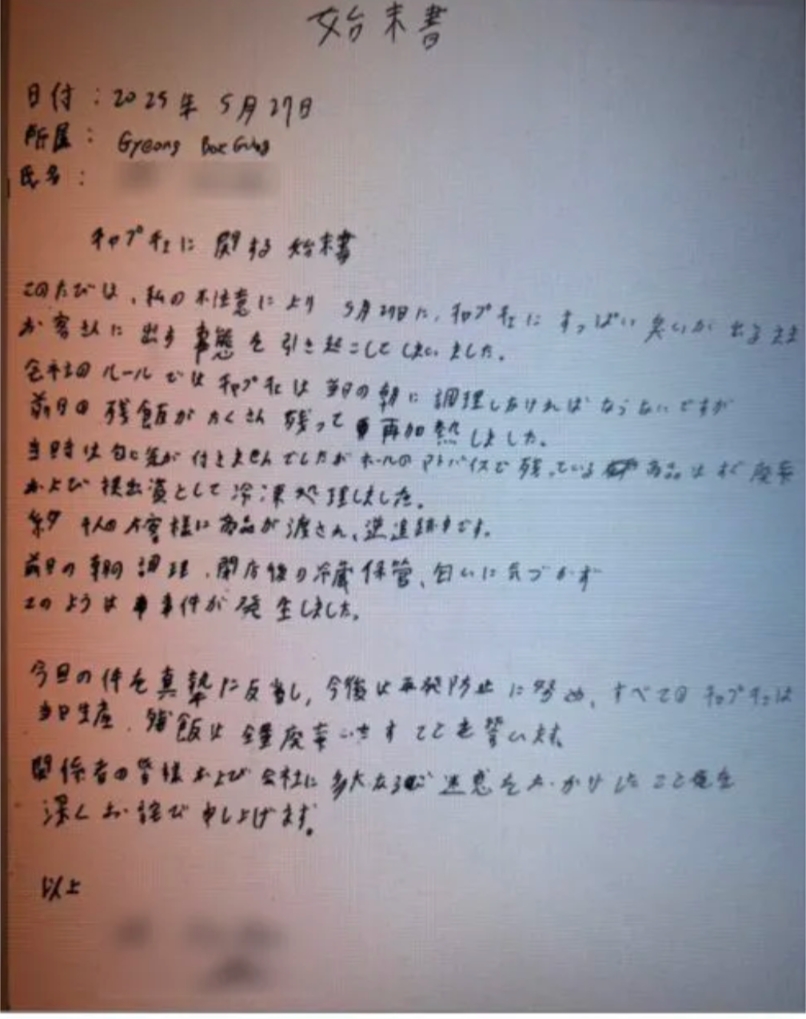 始末書
日付：2025年5月27日
所属：Gyeong Bok Gung
氏名：
チャプチェに関する始末書
このたびは、私の不注意により 5月27日に、チャプチェにすっぱい臭いが出るまま
お客さんに出す事態を引き起こしてしまいました。
会社のルールではチャプチェは当日の朝に調理しなければならないですが
前日の残飯がたくさん残って再加熱しました。
当時は匂に気が付きませんでしたがホールのアドバイスで残っている商品はすぐ廃棄
および提出資として冷凍処理しました。
約 人のお客様に商品が渡され、逆追跡中です。
前日の朝の調理、閉店後の冷蔵保管、匂いに気づかず
このような事件が発生しました。
今回の件を真摯に反省し、今後は再発防止に努め、すべてのチャプチェは
当日生産、残飯は全量廃棄いたすことを誓います。
関係者の皆様および会社に多大なるご迷惑をおかけしたこと
深くお詫び申し上げます。
以上